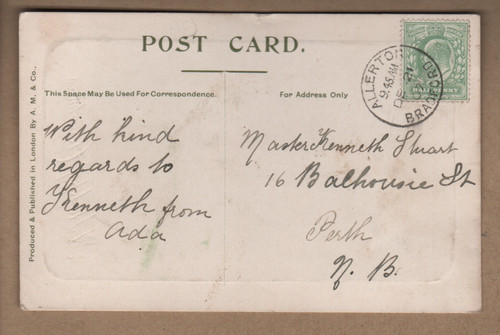 POST CARD.
This Space May Be Used For Correspondence.
For Address Only
Produced & Published in London By A. M. & Co.,
With kind
regards to
Kenneth from
Ada
Master Kenneth Stuart
16 Balhousie St
Perth
N. B.
ALLERTON
9.45 AM
DE 21
BRADFORD
HALFPENNY